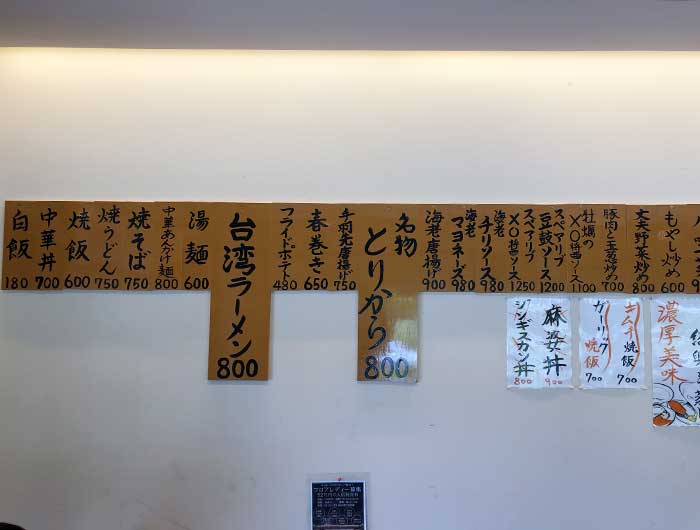 もやし炒め
600
丈夫野菜炒め
800
豚肉と玉葱炒め
700
牡蠣の
XO醤ソース
1100
スペアリブ
豆鼓ソース
1200
スペアリブ
XO醤ソース
1250
海老
チリソース
980
海老
マヨネーズ
980
海老唐揚げ
900
名物
とりから
800
手羽先唐揚げ
750
春巻き
650
フライドポテト
480
台湾ラーメン
800
湯麺
600
中華あんかけ麺
800
焼そば
750
焼うどん
750
焼飯
600
中華丼
700
白飯
180
濃厚美味
キムチ焼飯
700
ガーリック焼飯
700
麻婆丼
900
ジンギスカン丼
800
フロアレディー募集